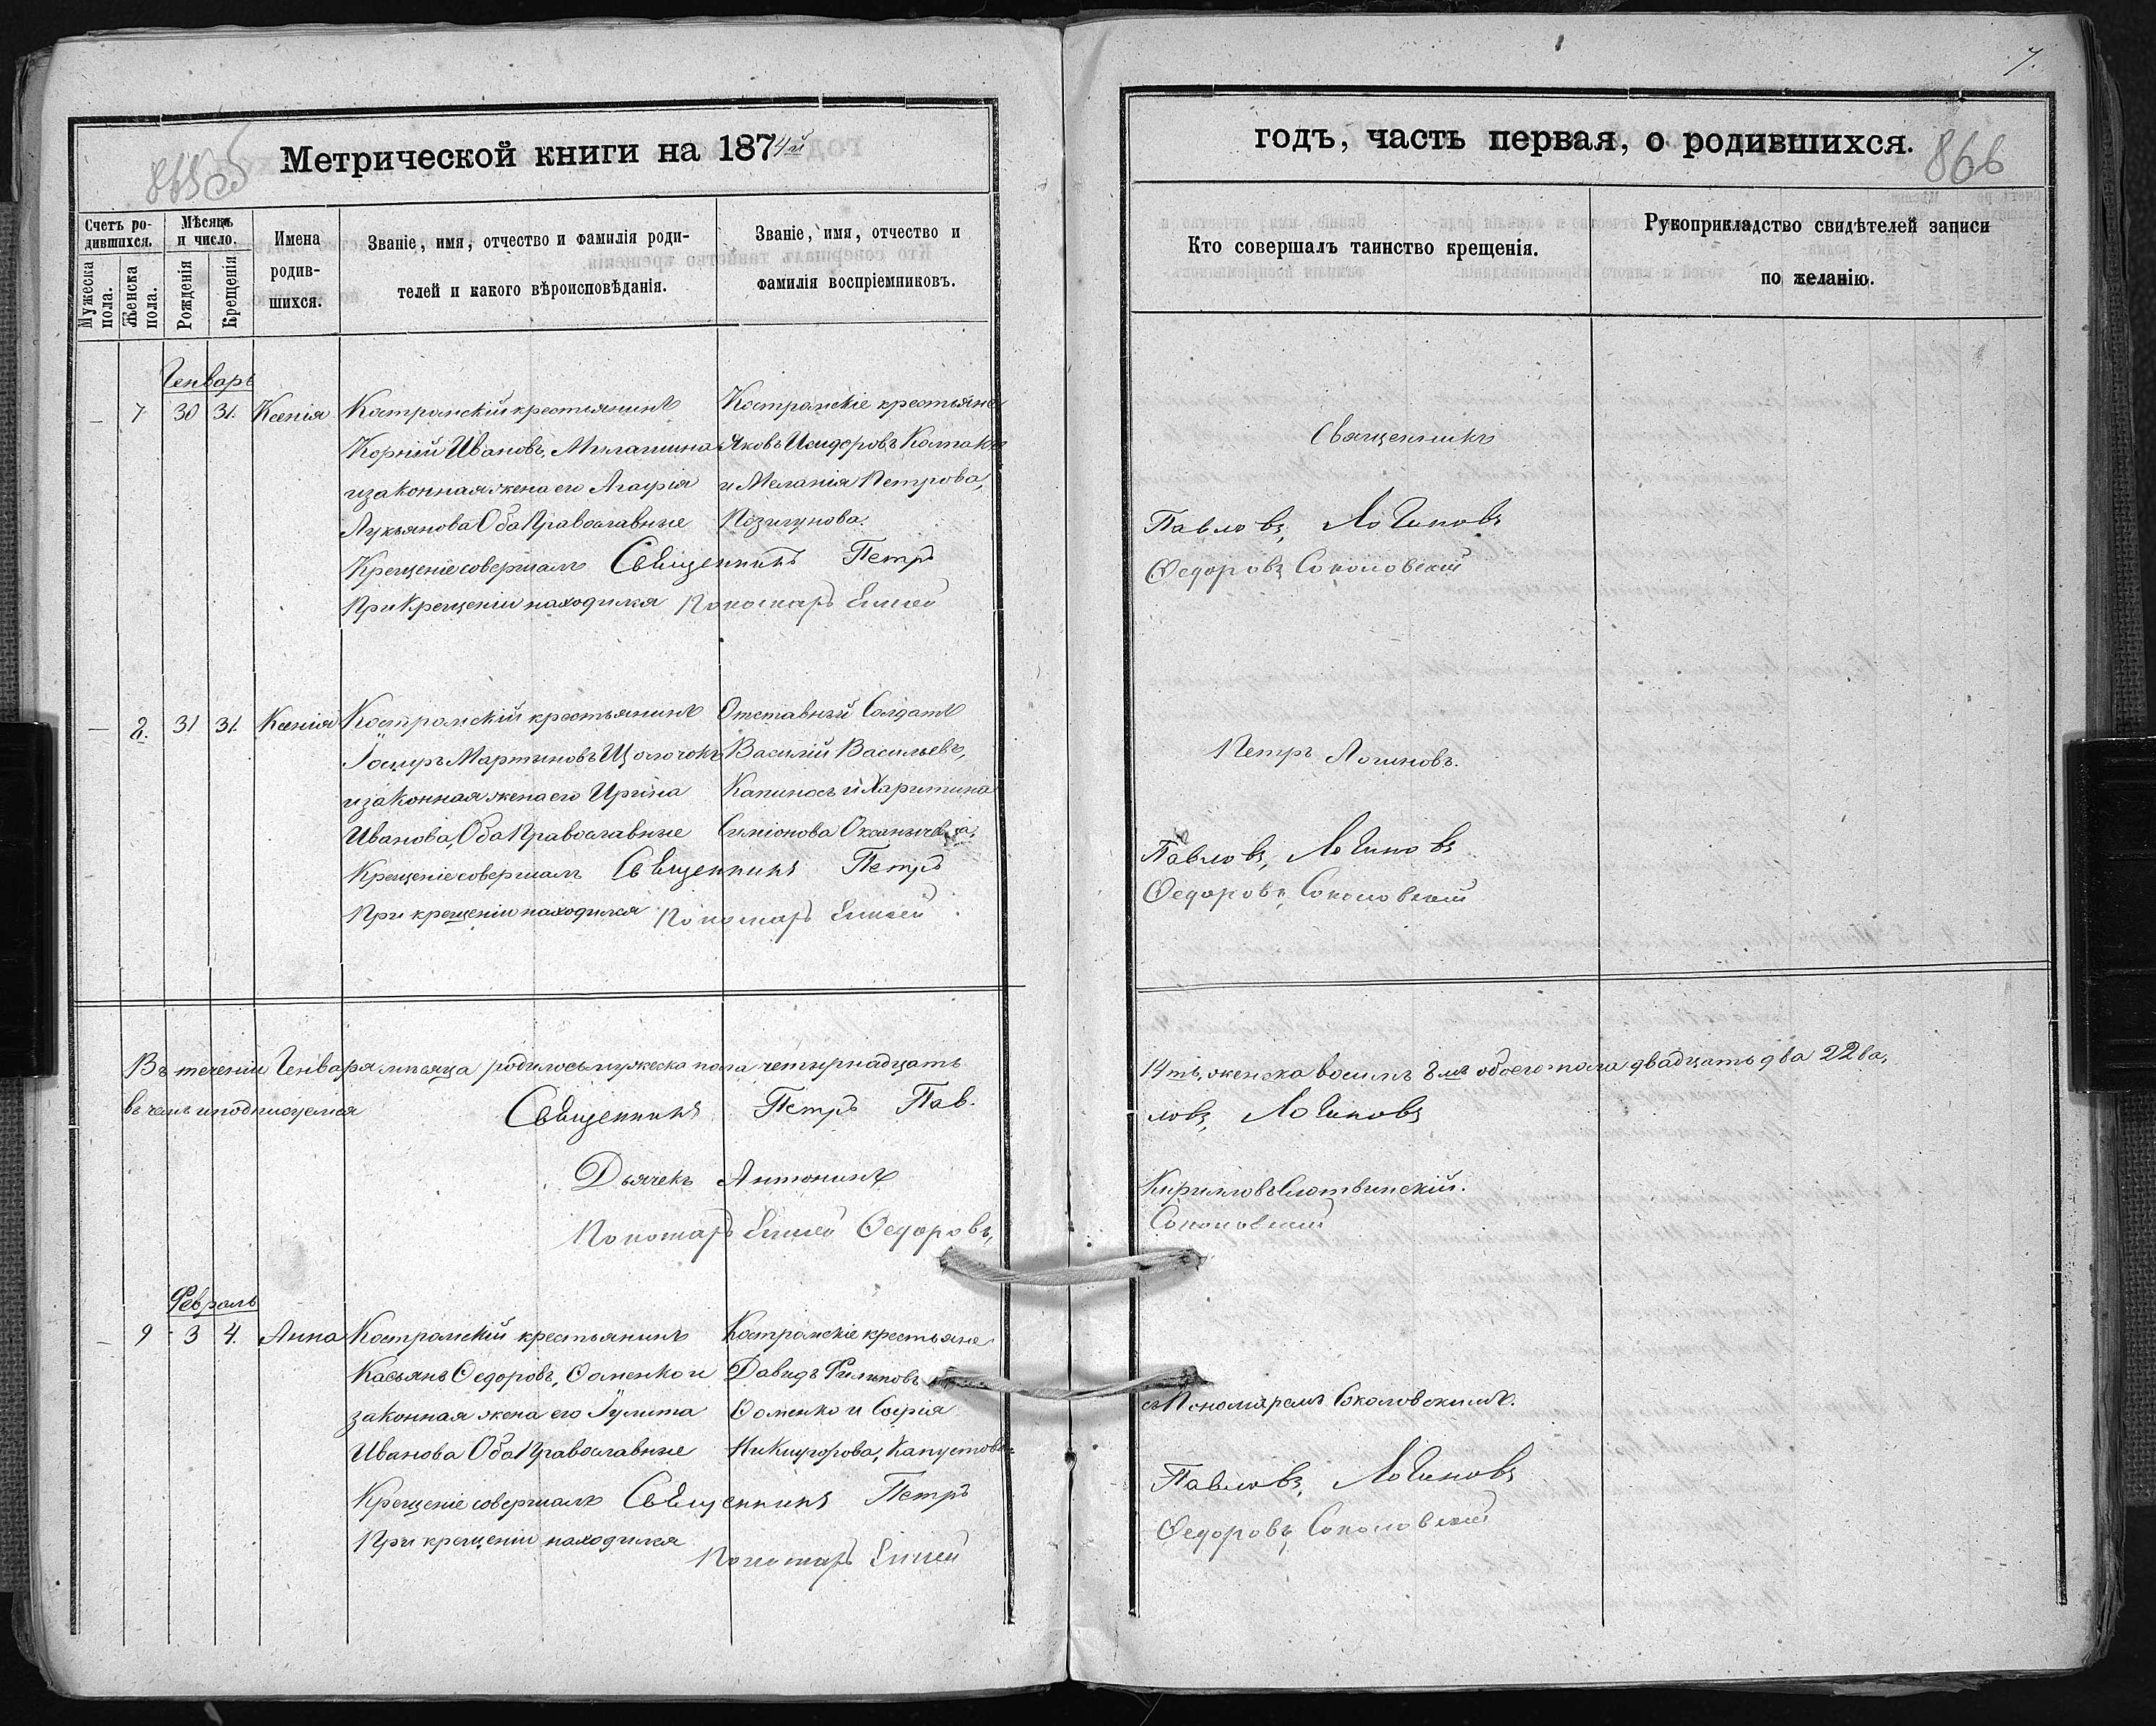 Метрической книги на 1874й
865 об
Счетъ ро-
дившихся.
Мужеска
пола.
Женска
пола.
Мѣсяцъ
и число.
Рожденія
Крещенія
Имена
родив-
шихся.
Званіе, имя, отчество и фамилія роди-
телей и какого вѣроисповѣданія.
Званіе, имя, отчество и
фамилія воспріемниковъ.
Генварь
— 7 30 31. Ксенія Костромскій крестьянинъ Костромскіе крестьяне
Корній Ивановъ, Яковъ Исидоровъ Колпакъ
и законная жена его Агафія и Меланія Петрова,
Лукьянова Оба Православные
Крещеніе совершалъ Священникъ Петръ
При Крещеніи находился Пономарь Елисей
— 8. 31 31. Ксенія Костромскій крестьянинъ Отставный Солдатъ
Мартиновъ Василій Васильевъ,
и законная жена его Ирина Капиносъ и Харитина
Иванова, Оба Православные Симіонова
Крещеніе совершалъ Священникъ Петръ
При крещеніи находился Пономарь Елисей
Въ теченіи Генваря мѣсяца родилось мужеска пола четырнадцать
въ чемъ и подписуемся
Священникъ Петръ Пав.
Дьячекъ Антонинъ
Пономарь Елисей Ѳедоровъ,
Февраль
— 9 3 4. Анна Костромскій крестьянинъ Костромскіе крестьяне
Касьянъ Ѳедоровъ, Ѳоменко и Давидъ Филиповъ
законная жена его Іулита Ѳоменко и Софія
Иванова Оба Православные Никифорова, Капустова
Крещеніе совершалъ Священникъ Петръ
При крещеніи находился
Пономарь Елисей
7.
годъ, часть первая, о родившихся.
866
Кто совершалъ таинство крещенія.
Рукоприкладство свидѣтелей записи
по желанію.
Священникъ
Павловъ, Логиновъ
Ѳедоровъ Соколовскій
Петръ Логиновъ.
Павловъ, Логиновъ
Ѳедоровъ, Соколовскій
14ть, женска восимъ 8мь обоего пола двадцать два 22ва,
ловъ, Логиновъ
Кириловъ
Соколовскій
съ Пономаремъ Соколовскимъ.
Павловъ, Логиновъ
Ѳедоровъ, Соколовскій